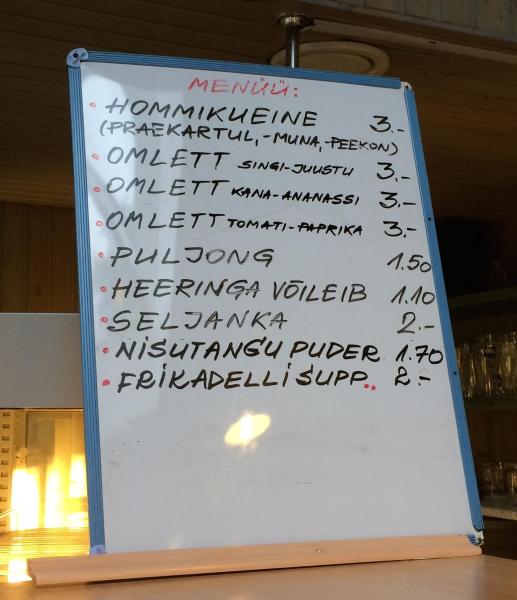 MENÜÜ:
• HOMMIKUEINE 3.-
(PRAEKARTUL,-MUNA,-PEEKON)
• OMLETT SINGI-JUUSTU 3.-
• OMLETT KANA-ANANASSI 3.-
• OMLETT TOMATI-PAPRIKA 3.-
• PULJONG 1.50
• HEERINGA VÕILEIB 1.10
• SELJANKA 2.-
• NISUTANGU PUDER 1.70
• FRIKADELLISUPP.. 2.-